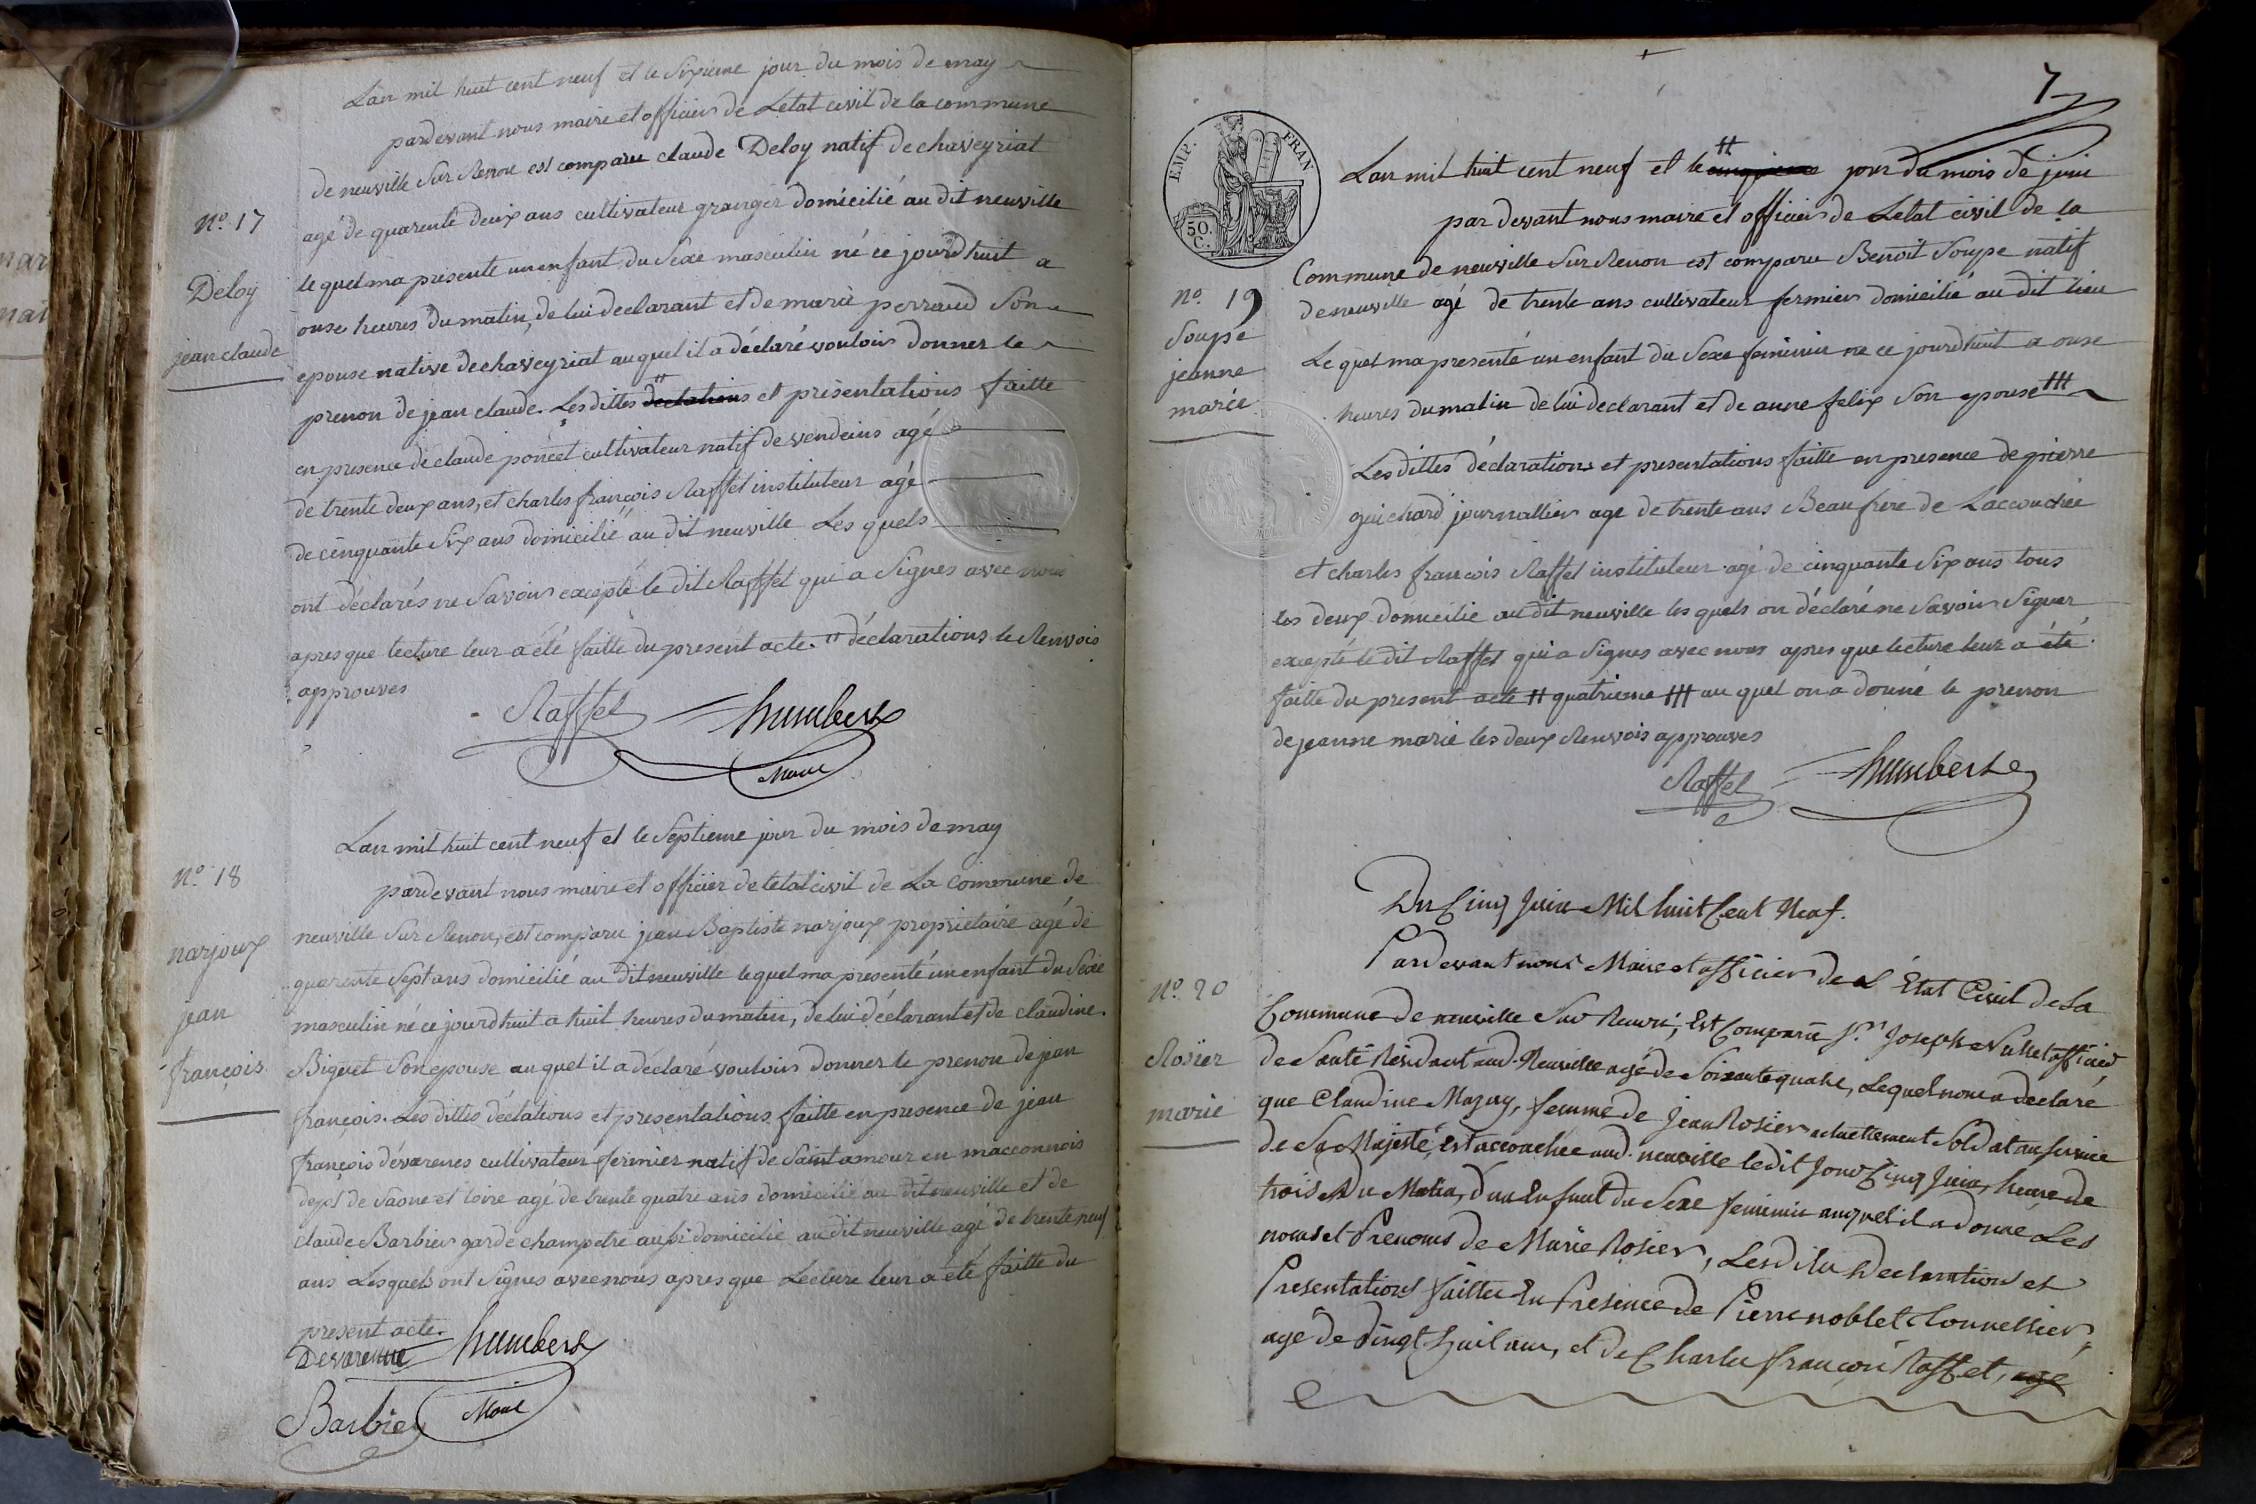 Lan mil huit cent neuf et le Sixieme jour du mois de may
pardevant nous maire et officier de Letat civil de la commune
de neuville Sur Renon est comparu claude Deloy natif de chaveyriat
agé de quarente deux ans cultivateur granger domicilié au dit neuville
le quel ma presenté un enfant du Sexe masculin né ce jourdhuit a
onse heures du matin, de lui declarant et de marie perraud Son
epouse native de chaveyriat au quel il a déclaré vouloir donner le
prenon de jean claude. Les dittes declations et présentations faitte
en presence de claude poncet cultivateur natif de vendeins agé
de trente deux ans, et charles françois Raffet instituteur agé
de cinquante Six ans domicilié au dit neuville Les quels
ont déclarés ne Savoir excepté le dit Raffet qui a Signes avec nous
apres que lecture leur a été faitte du present acte. # déclarations le Renvois
approuves
Raffet humbert
Maire
No. 17
Deloy
jean claude
Lan mil huit cent neuf et le Septieme jour du mois de may
pardevant nous maire et officier de letat civil de La Commune de
neuville Sur Renon, est comparu jean Baptiste narjoux proprietaire agé de
quarente Sept ans domicilié au dit neuville le quel ma presenté un enfant du Sexe
masculin né ce jourdhuit a huit heures du matin, de lui déclarant et de claudine
Biguet Son epouse au quel il a déclaré vouloir donner le prenon de jean
françois. Les dittes déclations et presentations faitte en presence de jean
françois dévarenes cultivateur fermier natif de Saint amour en macconnois
dept de Sâone et loire agé de trente quatre ans domicilié au dit neuville et de
claude Barbier garde champetre aussi domicilié au dit neuville agé de trente neuf
ans Lesquels ont Signes avec nous apres que Lecture leur a été faitte du
present acte.
Devarenne humbert
Barbier Maire
No. 18
narjoux
jean
françois
7
EMP. FRAN
50.
C.
Lan mil huit cent neuf et le # cinquieme jour du mois de juin
par devant nous maire et officier de Letat civil de la
Commune de neuville Sur Renon est comparu Benoit Soupe natif
de neuville agé de trente ans cultivateur fermier domicilié au dit lieu
Le quel ma presenté un enfant du Sexe feminin né ce jourdhuit a onse
heures du matin de lui declarant et de anne felix Son epouse ###
Les dittes déclarations et presentations faitte en presence de pierre
guichard journallier age de trente ans Beaufrere de Laccouchée
et charles francois Raffet instituteur agé de cinquante Six ans tous
les deux domicilié au dit neuville les quels on déclaré ne Savoir Signer
excepté le dit Raffet qui a Signes avec nous apres que lecture leur a été
faitte du present acte # quatrieme ### au quel on a donné le prenon
de jeanne marie les deux Renvois approuves
Raffet humbert
No. 19
Soupe
jeanne
marie
Du Cinq Juin Mil huit Cent Neuf.
Pardevant nous Maire et officier de L'Etat Civil de La
Commune de neuville Sur Renon, Est Comparu Sr. Joseph officier
de Santé Résidant aud. Neuville agé de Soixante quatre, Lequel nous a declaré
que Claudine Mazuy, femme de Jean Rosier actuellement Soldat au Service
de Sa Majesté, Est accouchée aud. neuville ledit Jour Cinq Juin, heure de
trois du Matin, d'un Enfant du Sexe feminin auquel il a donné Les
noms et Prenoms de Marie Rosier, Lesdites Declarations et
Presentations faittes En Presence de Pierre noblet Tonnellier,
agé de Vingt huit ans, et de Charles françois Raffet, agé
No. 20
Rosier
marie